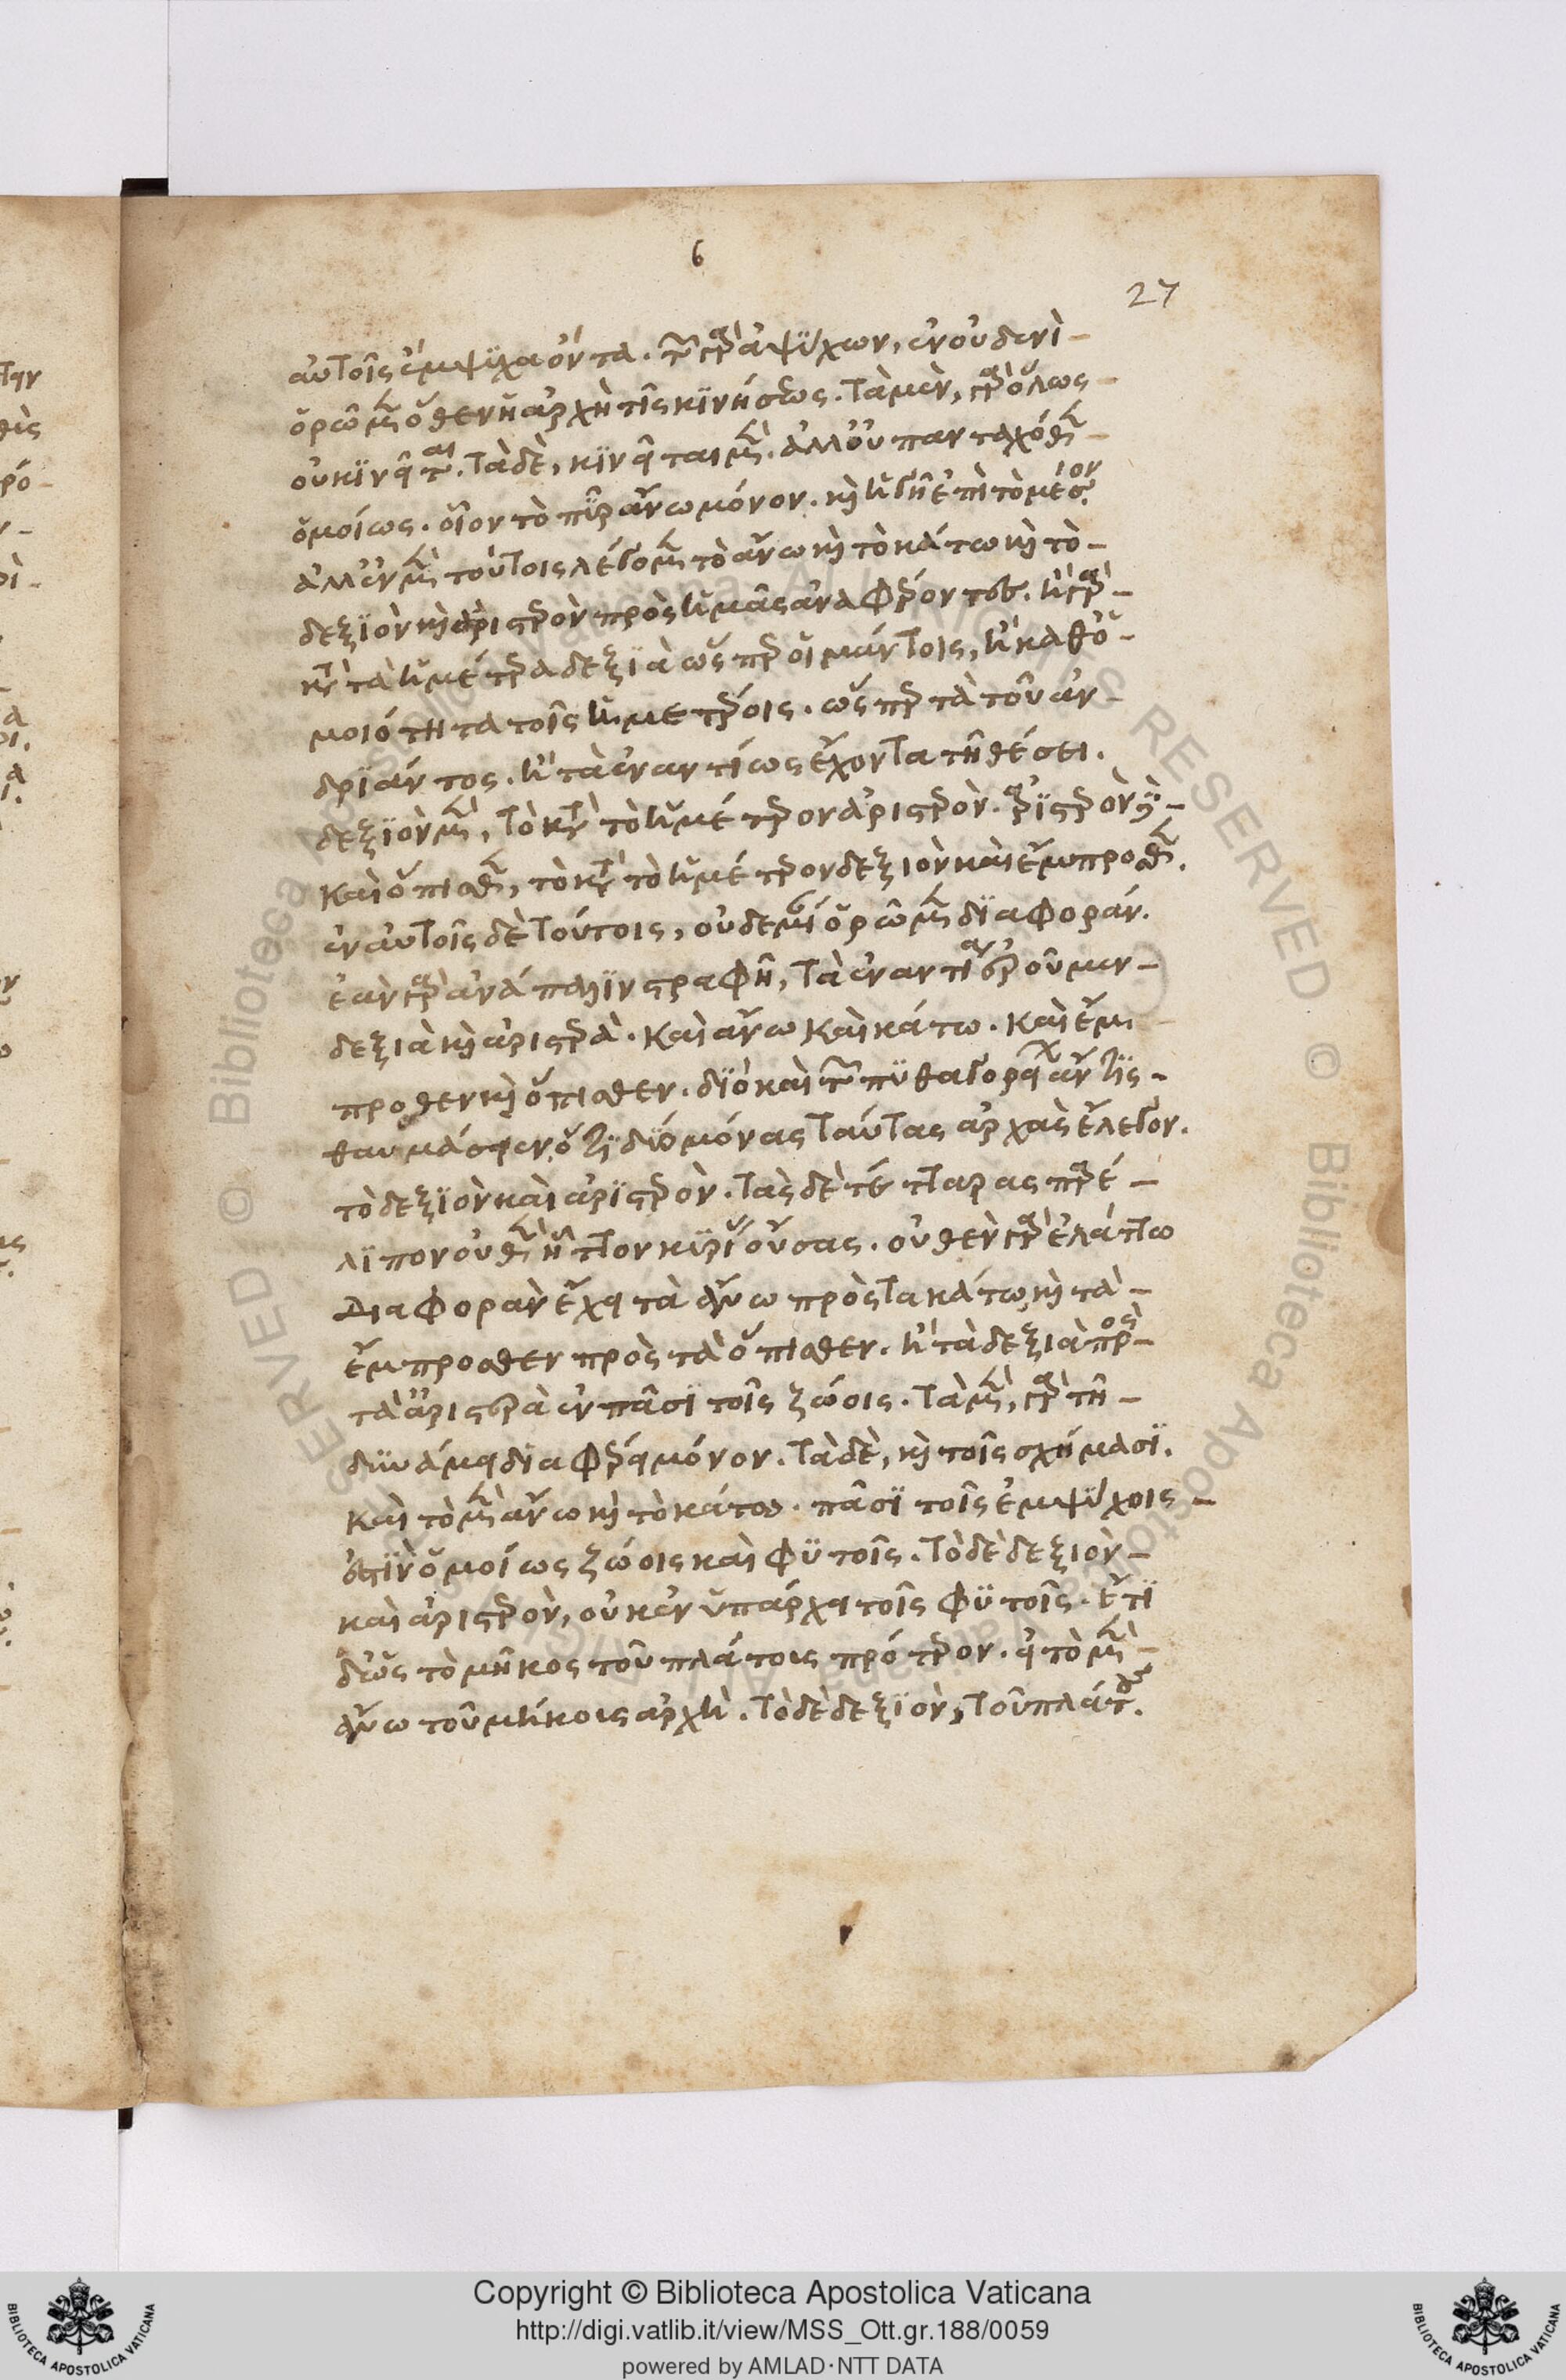 6
27
αὐτοῖς ἔμψϋχα ὄντα. τῶν γὰρ ἀψΰχων, ἐν οὐδενὶ -
ὁρῶμεν ὅθεν ἡ ἀρχὴ τῆς κϊνήσεως. τὰ μὲν, γὰρ ὅλως -
οὐ κϊνεῖται. τὰ δὲ, κϊνεῖται μὲν. ἀλλ' οὐ πανταχόθεν -
ὁμοίως. οἷον τὸ πῦρ ἄνω μόνον. καὶ ἡ γῆ ἐπὶ τὸ μέσον.
ἀλλ' ἐν μὲν τούτοις λέγομεν τὸ ἄνω καὶ τὸ κάτω καὶ τὸ -
δεξϊὸν καὶ ἀριστερὸν πρὸς ἡμᾶς ἀναφέροντες. ἢ γὰρ -
κατὰ τὰ ἡμέτερα δεξϊὰ ὥσπερ οἱ μάντεις, ἢ καθ' ὁ -
μοιότητα τοῖς ἡμετέροις. ὥσπερ τὰ τοῦ ἀν -
δρϊάντος. ἢ τὰ ἐναντίως ἔχοντα τῇ θέσει.
δεξϊὸν μὲν, τὸ κατὰ τὸ ἡμέτερον ἀριστερὸν. ἀρϊστερὸν δὲ -
καὶ ὄπισθεν, τὸ κατὰ τὸ ἡμέτερον δεξιὸν καὶ ἔμπροσθεν.
ἐν αὐτοῖς δὲ τούτοις, οὐδεμίαν ὁρῶμεν δϊαφοράν.
ἐὰν γὰρ ἀνάπαλϊν στραφῇ, τὰ ἐναντία ἐροῦμεν -
δεξιὰ καὶ ἀριστερὰ. καὶ ἄνω καὶ κάτω. καὶ ἔμ
προσθεν καὶ ὄπισθεν. δϊὸ καὶ τῶν πϋθαγορείων ἄν τϊς -
θαυμάσειεν ὅτϊ δύο μόνας ταύτας ἀρχὰς ἔλεγον.
τὸ δεξϊὸν καὶ ἀρϊστερὸν. τὰς δὲ τέτταρας παρέ -
λϊπον οὐθὲν ἧττον κϋρίους οὔσας. οὐθὲν γὰρ ἐλάττω
διαφορὰν ἔχει τὰ ἄνω πρὸς τὰ κάτω, καὶ τὰ -
ἔμπροσθεν πρὸς τὰ ὄπισθεν. ἢ τὰ δεξιὰ πρὸς -
τὰ ἀριστερὰ ἐν πᾶσϊ τοῖς ζώοις. τὰ μὲν, γὰρ τῇ -
δϋνάμει δϊαφέρει μόνον. τὰ δὲ, καὶ τοῖς σχήμασϊ.
καὶ τὸ μὲν ἄνω καὶ τὸ κάτω. πᾶσϊ τοῖς ἐμψΰχοις -
ἐστϊν ὁμοίως ζώοις καὶ φϋτοῖς. τὸ δὲ δεξιὸν -
καὶ ἀριστερὸν, οὐκ ἐνϋπάρχει τοῖς φϋτοῖς. ἔτϊ
δ' ὡς τὸ μῆκος τοῦ πλάτους πρότερον. εἰ τὸ μὲν -
ἄνω τοῦ μήκους ἀρχὴ. τὸ δὲ δεξϊὸν, τοῦ πλάτους.
Copyright © Biblioteca Apostolica Vaticana
http://digi.vatlib.it/view/MSS_Ott.gr.188/0059
powered by AMLAD·NTT DATA